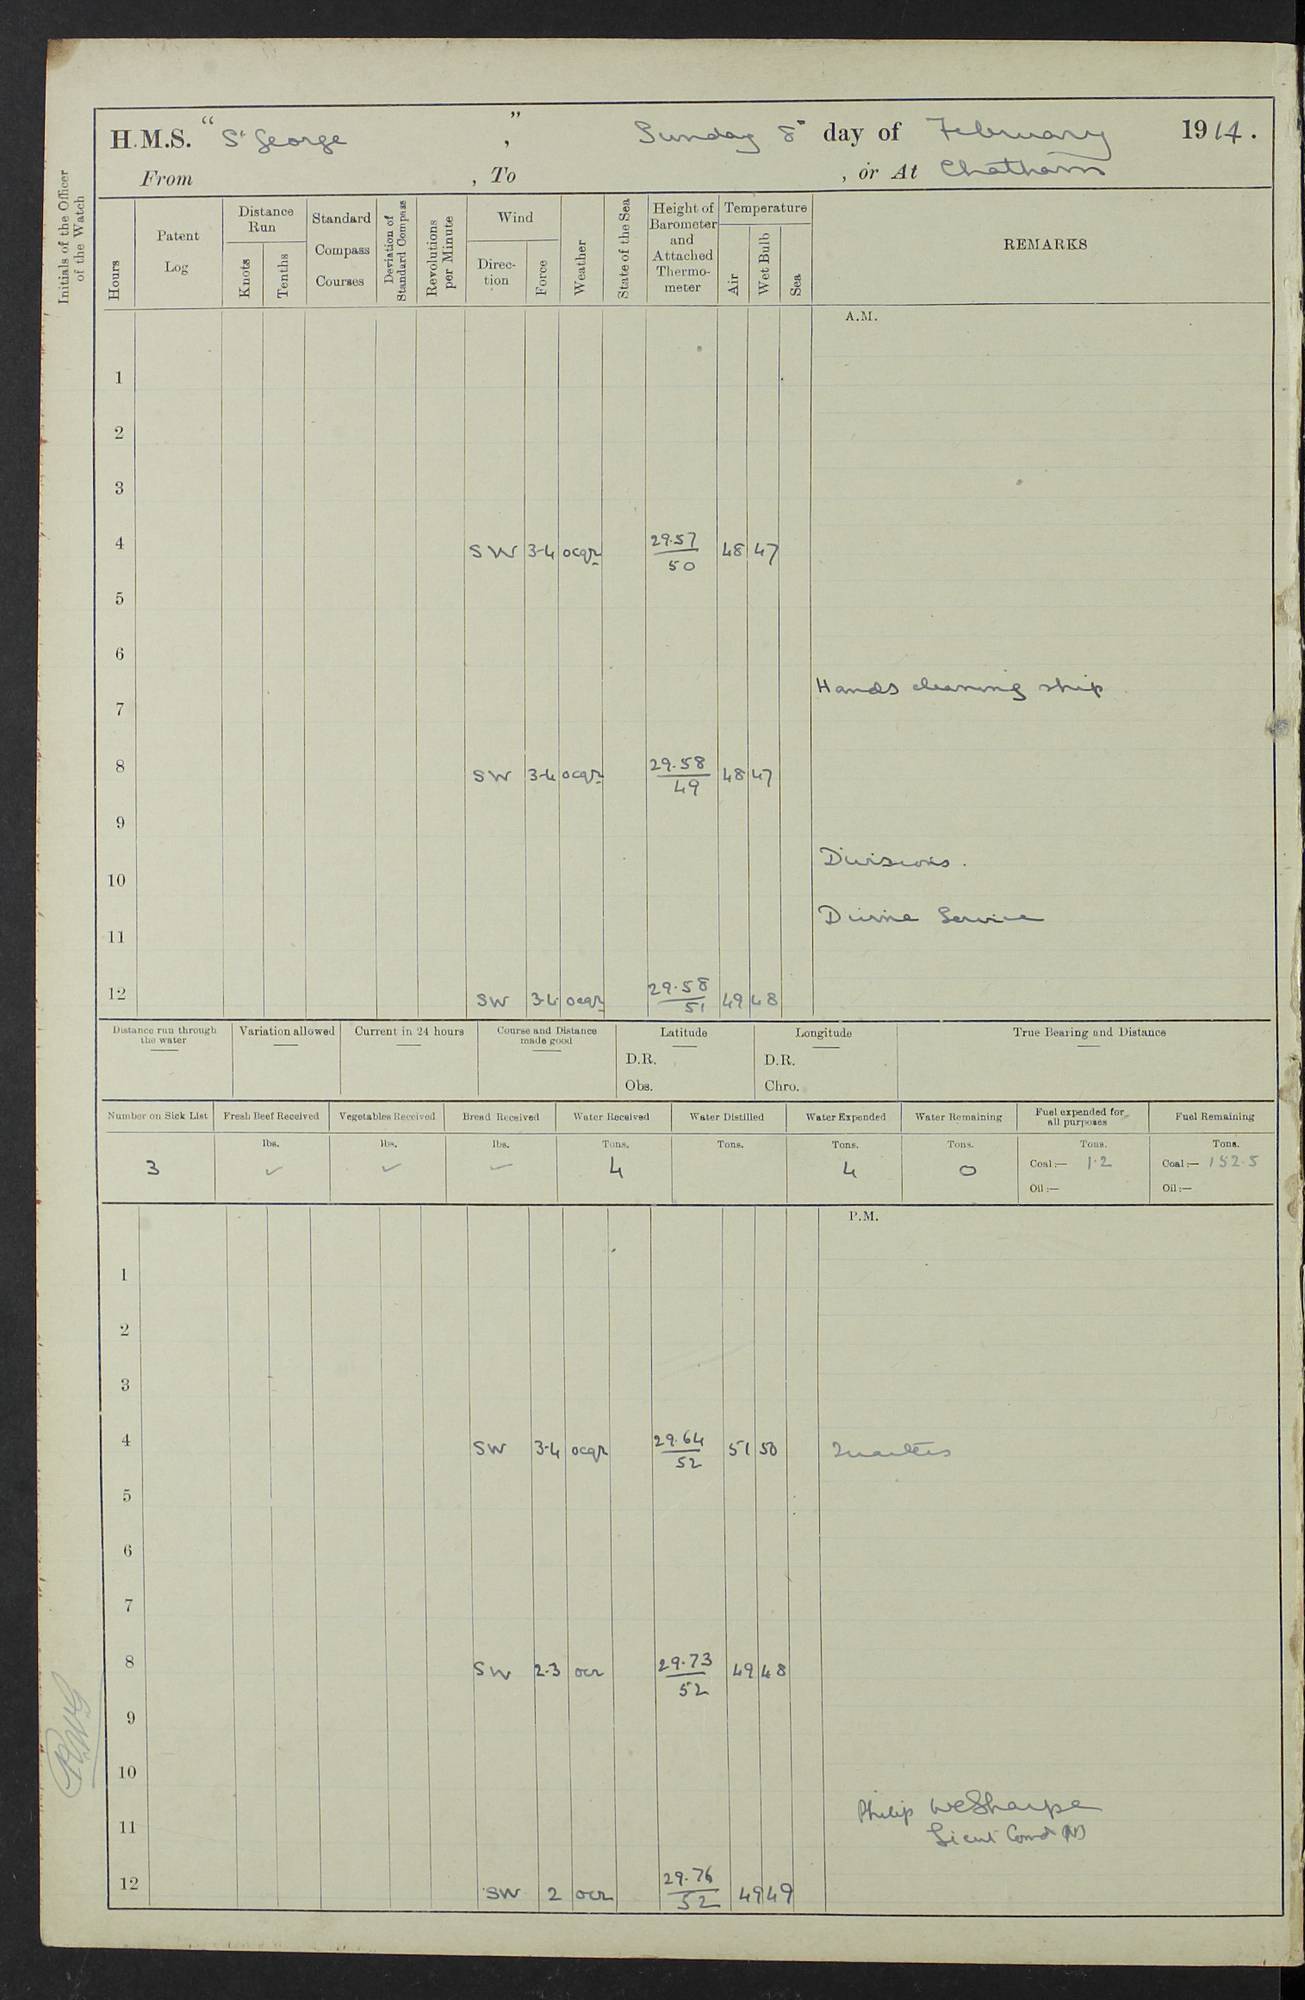 H.M.S. "St George", Sunday 8th day of February 1914.
From , To , or At Chatham
Initials of the Officer of the Watch
Hours
Patent Log
Distance Run
Knots
Tenths
Standard Compass Courses
Deviation of Standard Compass
Revolutions per Minute
Wind
Direc-tion
Force
Weather
State of the Sea
Height of Barometer and Attached Thermo-meter
Temperature
Air
Wet Bulb
Sea
REMARKS
A.M.
1
2
3
4 SW 3-4 ocqr 29.57/50 48 47
5
6
Hands cleaning ship
7
8 SW 3-4 ocqr 29.58/49 48 47
9
Divisions.
10
Divine Service
11
12 SW 3-4 ocqr 29.58/51 49 48
Distance run through the water
Variation allowed
Current in 24 hours
Course and Distance made good
Latitude
D.R.
Obs.
Longitude
D.R.
Chro.
True Bearing and Distance
Number on Sick List
3
Fresh Beef Received
lbs.
✓
Vegetables Received
lbs.
✓
Bread Received
lbs.
✓
Water Received
Tons.
4
Water Distilled
Tons.
Water Expended
Tons.
4
Water Remaining
Tons.
0
Fuel expended for all purposes
Tons.
Coal:— 1.2
Oil:—
Fuel Remaining
Tons.
Coal:— 152.5
Oil:—
P.M.
1
2
3
4 SW 3-4 ocqr 29.64/52 51 50 Quarters
5
6
7
8 SW 2-3 ocr 29.73/52 49 48
9
10
Philip W E Sharpe
11 Lieut Comdr (N)
12 SW 2 ocr 29.76/52 49 49